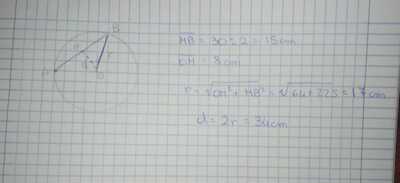 B
MB = 30:2 = 15cm
OM = 8cm
r = √OM² + MB² = √64+225 = 17cm
d = 2r = 34cm